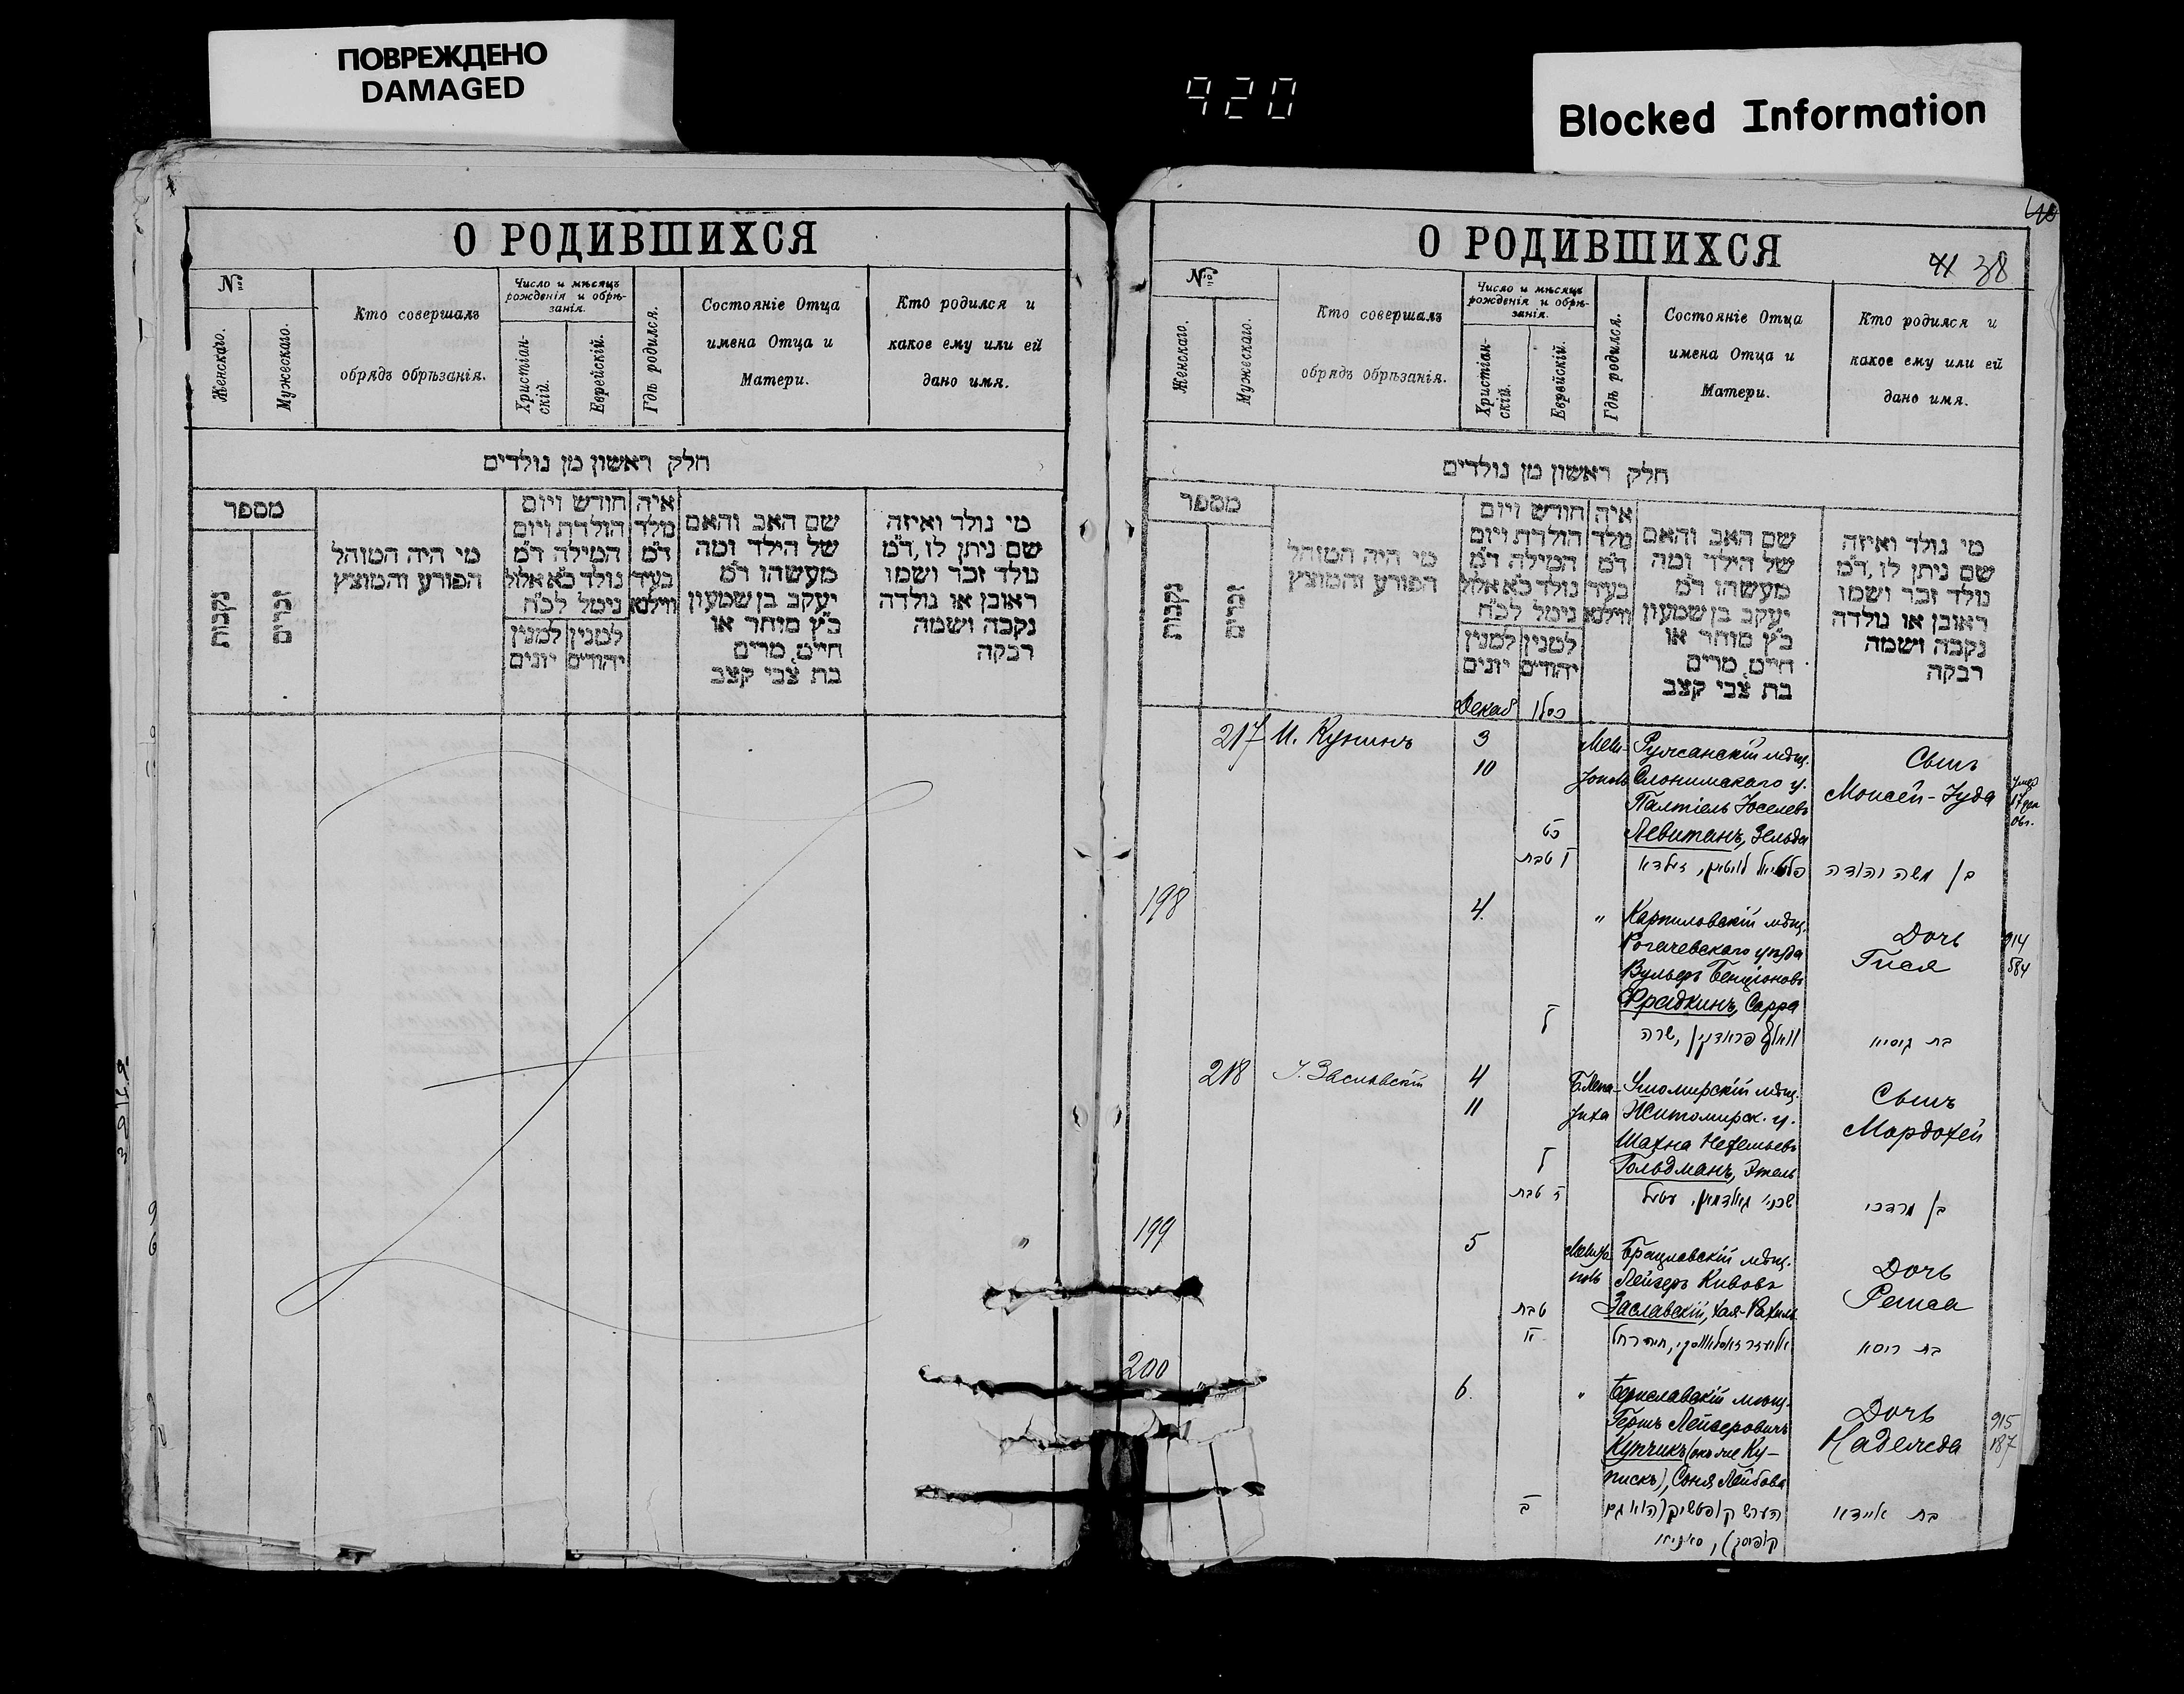 ПОВРЕЖДЕНО
DAMAGED
920
Blocked Information
О РОДИВШИХСЯ
№
Женскаго.
Мужескаго.
Кто совершалъ
обрядъ обрѣзанія.
Число и мѣсяцъ
рожденія и обрѣ-
занія.
Христіан-
скій.
Еврейскій.
Гдѣ родился.
Состояніе Отца
имена Отца и
Матери.
Кто родился и
какое ему или ей
дано имя.
חלק ראשון מן נולדים
מספר
נקבות
זכרים
מי היה המוהל
הפורע והמוצץ
חודש ויום
הולדת ויום
המילה ד״מ
נולד כ״א אלול
נימל לכ״ח
למנין
יונים
למנין
יהודים
איה
מלד
ד״מ
בעיר
ווילנא
שם האב והאם
של הילד ומה
מעשהו ד״מ
יעקב בן שמעון
כ״ץ סוחר או
חייט, מרים
בת צבי קצב
מי נולד ואיזה
שם ניתן לו, ד״מ
נולד זכר ושמו
ראובן או נולדה
נקבה ושמה
רבקה
40
О РОДИВШИХСЯ
41 38
№
Женскаго.
Мужескаго.
Кто совершалъ
обрядъ обрѣзанія.
Число и мѣсяцъ
рожденія и обрѣ-
занія.
Христіан-
скій.
Еврейскій.
Гдѣ родился.
Состояніе Отца
имена Отца и
Матери.
Кто родился и
какое ему или ей
дано имя.
חלק ראשון מן נולדים
מספר
נקבות
זכרים
מי היה המוהל
הפורע והמוצץ
חודש ויום
הולדת ויום
המילה ד״מ
נולד כ״א אלול
נימל לכ״ח
למנין
יונים
למנין
יהודים
איה
מלד
ד״מ
בעיר
ווילנא
שם האב והאם
של הילד ומה
מעשהו ד״מ
יעקב בן שמעון
כ״ץ סוחר או
חייט, מרים
בת צבי קצב
מי נולד ואיזה
שם ניתן לו, ד״מ
נולד זכר ושמו
ראובן או נולדה
נקבה ושמה
רבקה
Декаб כסלו
217 И. Кунинъ 3 Мели-
10 тополь
כט
ו טבת
Ружанскій мѣщ.
Слонимскаго у.
Палтіель Іоселевъ
Левитанъ, Зельда
פלטיאל לוויטאן, זעלדא
Сынъ
Моисей-Іуда
בן משה יהודה
198 4 "
ל
Карпиловскій мѣщ.
Рогачевскаго уѣзда
Вульфъ Бенціоновъ
Фрадкинъ, Сарра
וואלף פראדקין, שרה
Дочь
Гися
בת גיסיא
914
584
218 І. Заславскій 4
11
ל
ז טבת
Житомирск. у.
Шахна
Гольдманъ, Этель
שכנא גאלדמאן, עטיל
Сынъ
Мордохей
בן מרדכי
199 5
טבת
Брацлавскій мѣщ.
Лейзеръ Кивовъ
Заславскій, Хая-Рахиль
אליעזר זאסלאווסקי, חיה רחל
Дочь
בת רוסא
200 6. "
ב
Бериславскій мѣщ.
Гершъ Лейзеровичъ
Купчикъ (онъ же Ку-
пискъ), Соня Лейбова
הערש קופטשיק (הוא גם
קופיסק), סאניא
Дочь
Надежда
בת
915
187